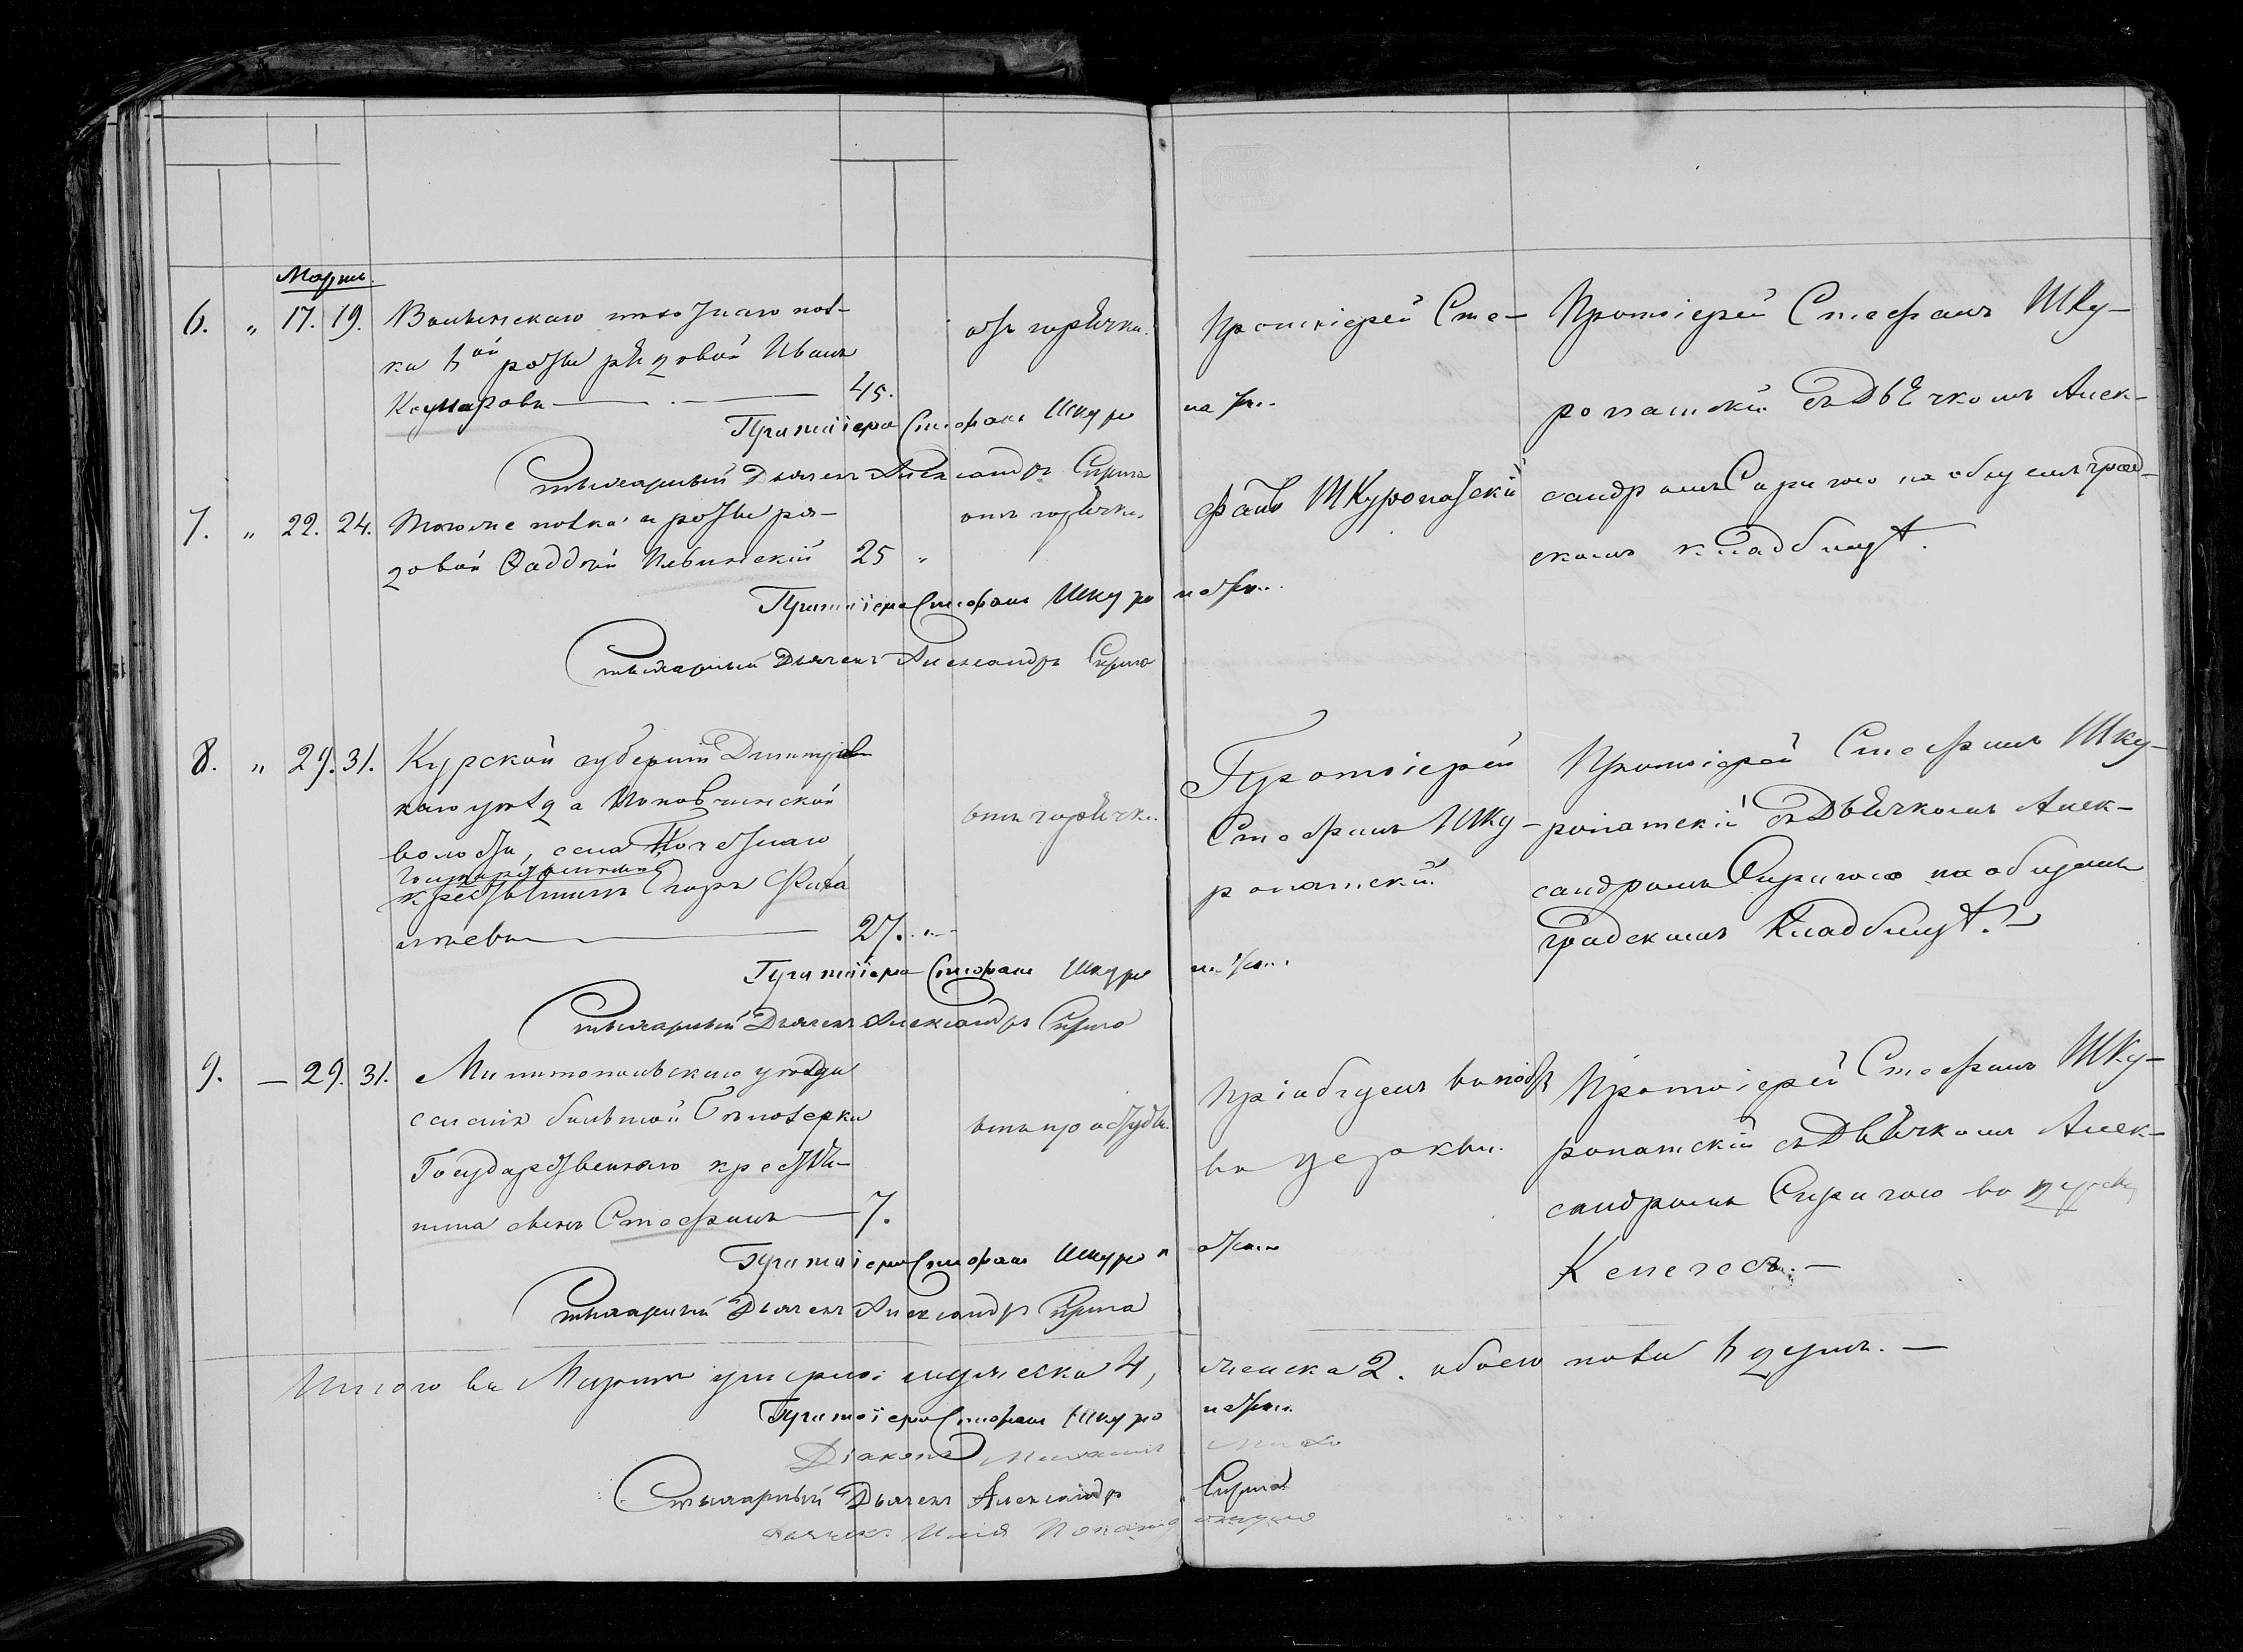 Мартъ.
6. " 17. 19. Волынскаго пѣхотнаго пол-
ка 6ой роты рядовой Иванъ
45.
отъ горячки.
Протоіерей Сте-
Протоіерей Стефанъ Шку-
ропатскій съ Дьячкомъ Алек-
сандромъ Сиригою на общемъ град-
скомъ кладбищѣ.
Протоіерей Стефанъ Шкуропат...
Стихарный Дьячекъ Александръ Сирига
7. " 22. 24. Тогоже полка и роты ря-
довой Фаддей 25 "
отъ горячки.
фанъ Шкуропатскій
Протоіерей Стефанъ Шкуропат...
Стихарный Дьячекъ Александръ Сирига
8. " 29. 31. Курской губерніи Дмитріев-
скаго уѣзда
волости, села
Государственный
крестьянинъ Егоръ Фила
тьевъ 27. "
отъ горячки.
Протоіерей
Стефанъ Шку-
ропатскій
Протоіерей Стефанъ Шку-
ропатскій съ Дьячкомъ Алек-
сандромъ Сиригою на общемъ
градскомъ кладбищѣ.
Протоіерей Стефанъ Шкуропат...
Стихарный Дьячекъ Александръ Сирига
9. — 29. 31. Мелитопольскаго уѣзда
селенія большой Бѣлозерки
Государственнаго крестья-
нина сынъ Стефанъ — 7.
отъ простуды.
Пріобщенъ
въ церкви.
Протоіерей Стефанъ Шку-
ропатскій съ Дьячкомъ Алек-
сандромъ Сиригою во
Протоіерей Стефанъ Шкуропат...
Стихарный Дьячекъ Александръ Сирига
Итого въ Мартѣ умерло: мужеска 4, женска 2. обоего пола 6 душъ. —
Протоіерей Стефанъ Шкуропат...
Діаконъ Михаилъ
Стихарный Дьячекъ Александръ Сирига
Дьячекъ Илія